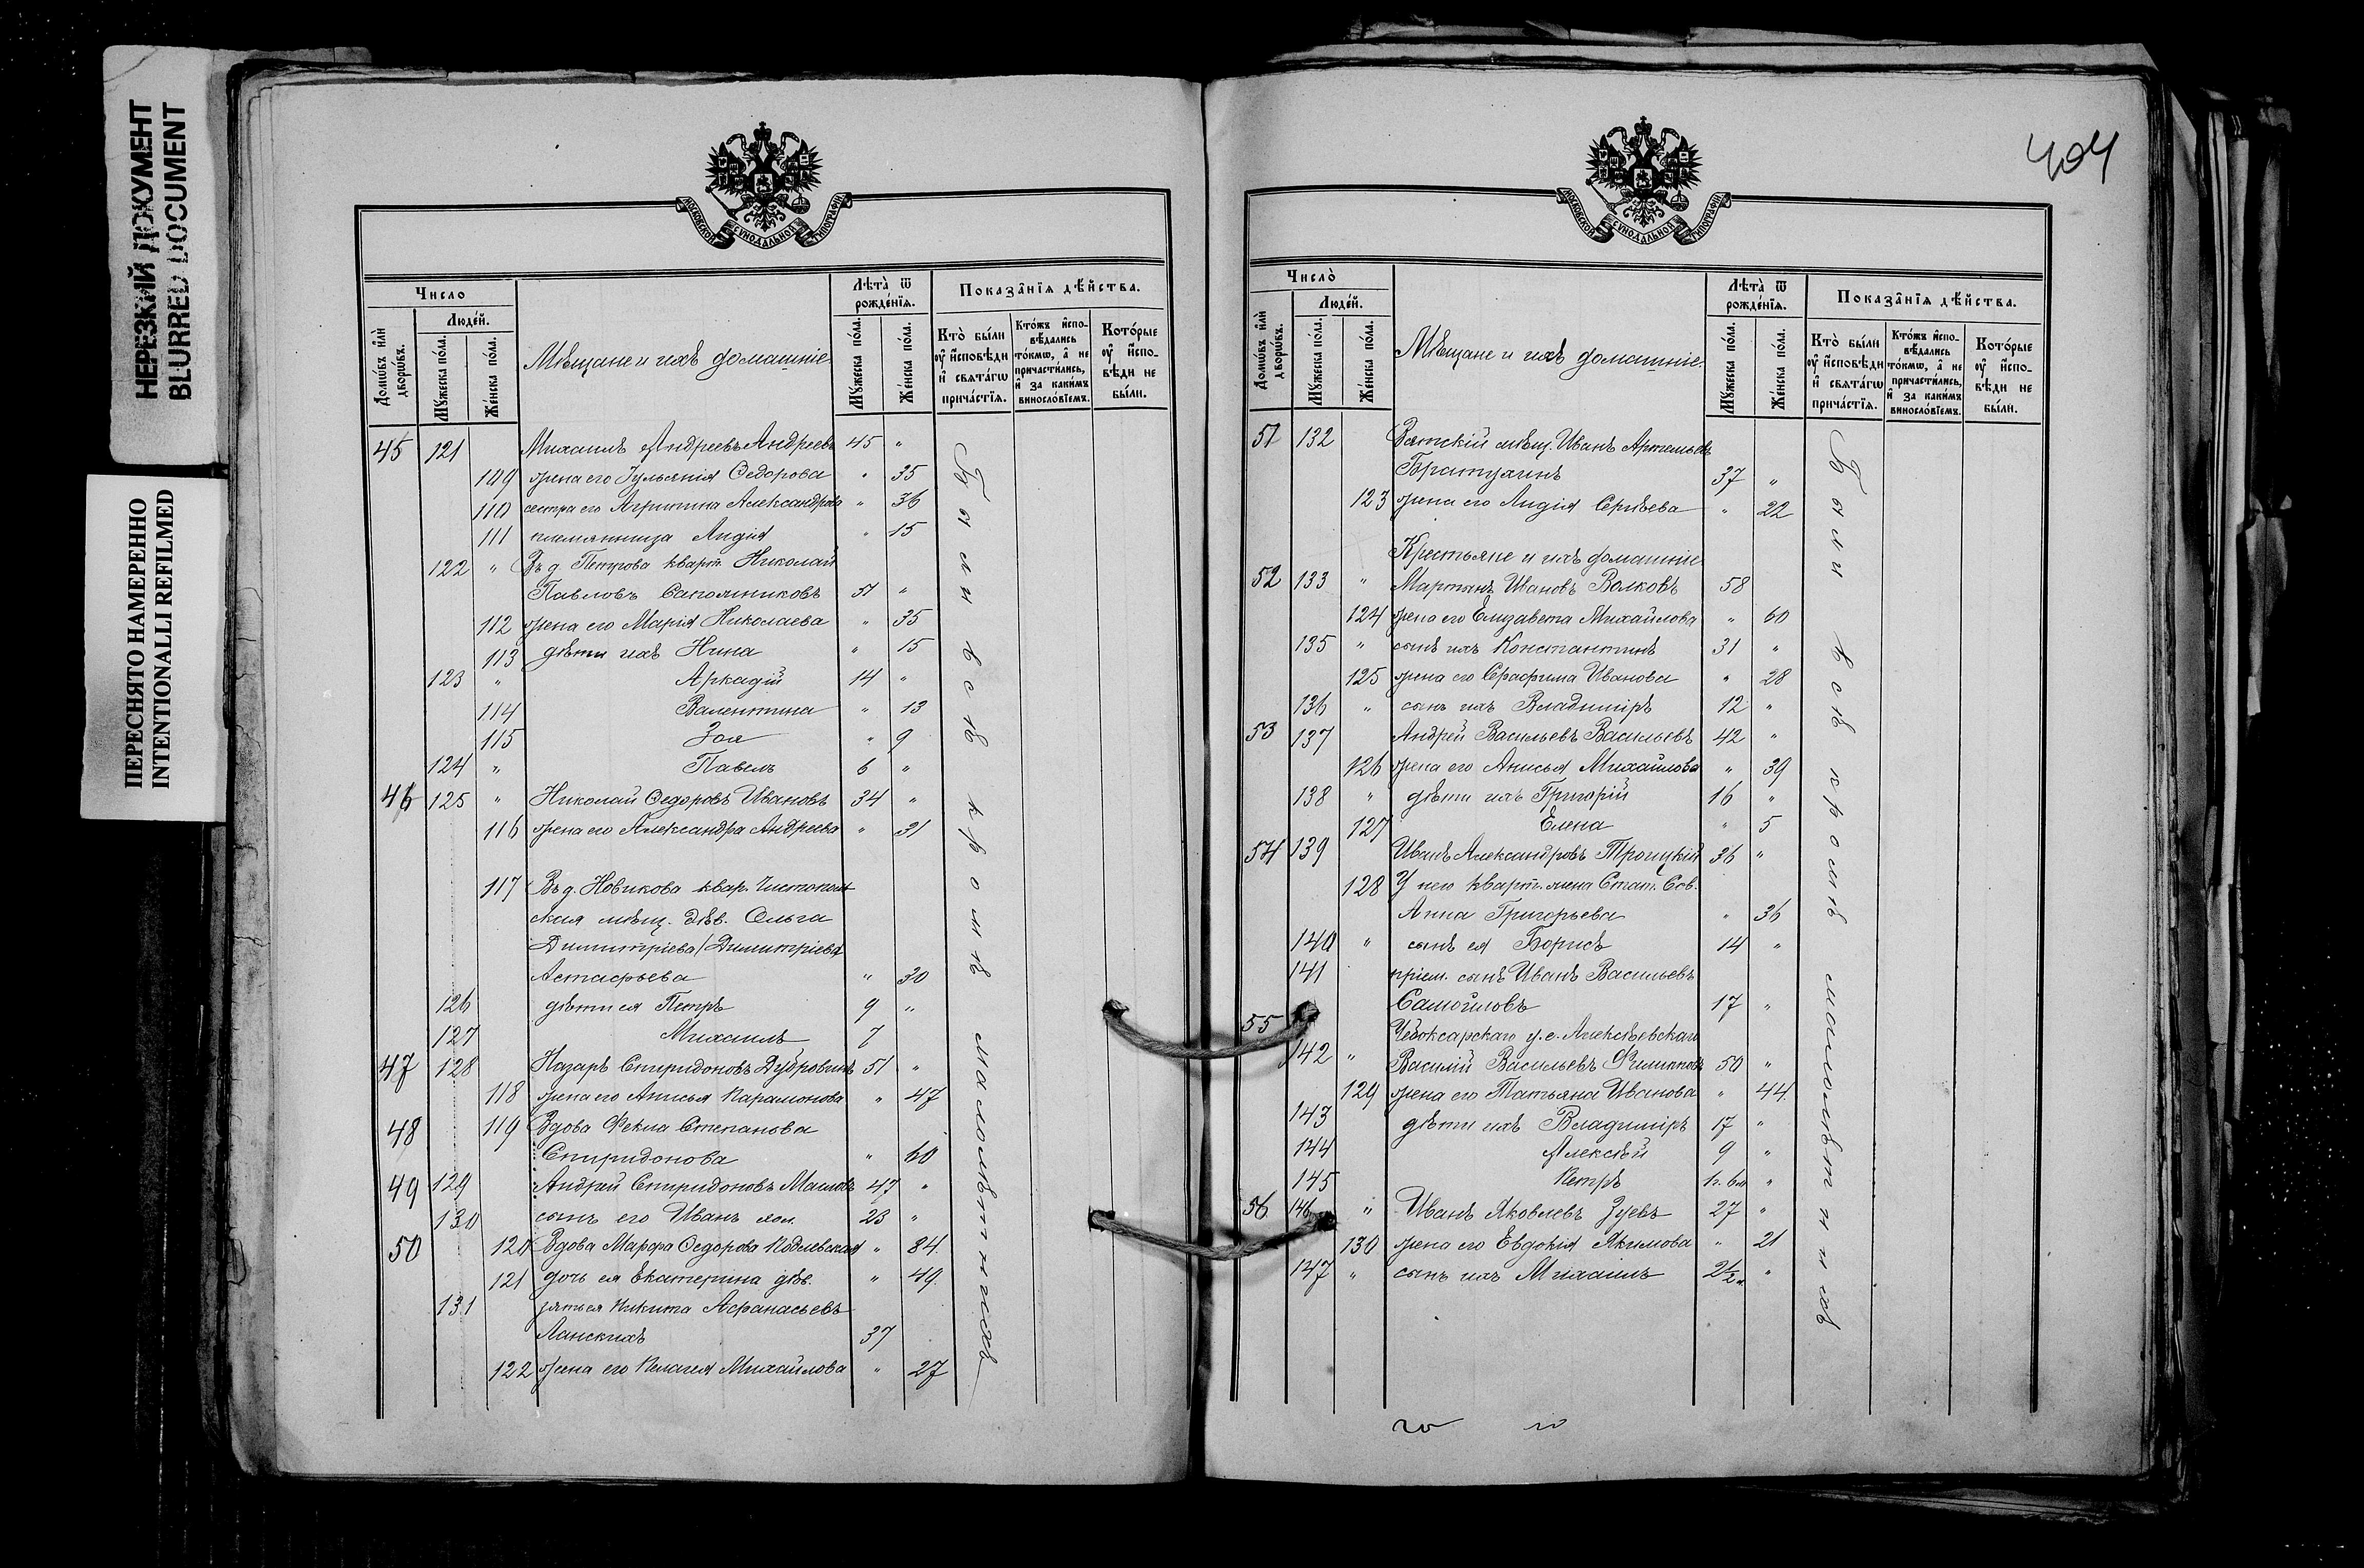 НЕРЕЗКИЙ ДОКУМЕНТ
BLURRED DOCUMENT
ПЕРЕСНЯТО НАМЕРЕННО
INTENTIONALLI REFILMED
МОСКОВСКОЙ СУНОДАЛЬНОЙ ТИПОГРАФІИ
Число
Людей.
Домѡвъ или дворѡвъ.
Мужеска пола.
Женска пола.
Мѣщане и ихъ домашніе.
Лѣта ѿ рожденїя.
Мужеска пола.
Женска пола.
Показанїя дѣйства.
Кто были оу исповѣди и свѧтагѡ причастїя.
Ктожъ исповѣдались токмѡ, а не причастились, и за какимъ винословїемъ.
Которые оу исповѣди не были.
45 121 Михаилъ Андреевъ Андреевъ 45 "
109 жена его Іульянія Ѳедорова " 35
110 сестра его Агрипина Александрова " 36
111 племянница Лидія " 15
122 " Въ д. Петрова кварт. Николай
Павловъ Сапожниковъ 51 "
112 жена его Марія Николаева " 35
113 дѣти ихъ Нина " 15
123 " Аркадій 14 "
114 Валентина " 13
115 Зоя " 9
124 " Павелъ 6 "
46 125 " Николай Ѳедоровъ Ивановъ 34 "
116 жена его Александра Андреева " 31
117 Въ д. Новикова квар. Чистополь
ская мѣщ. дѣв. Ольга
Димитріева/Димитріевн
Астафьева " 30
126 дѣти ея Петръ 9 "
127 Михаилъ 7
47 128 Назаръ Спиридоновъ Дубровинъ 51 "
118 жена его Анисья Парамонова " 47
48 119 Вдова Фекла Степанова
Спиридонова " 60
49 129 Андрей Спиридоновъ Масловъ 47 "
130 сынъ его Иванъ хол. 23 "
50 120 Вдова Марфа Ѳедорова Кобелевская " 84
121 дочь ея Екатерина дѣв. " 49
131 зять ея Никита Афанасьевъ
Ланскихъ 37
122 жена его Пелагея Михайлова " 27
Были всѣ кромѣ малолѣтнихъ
404
МОСКОВСКОЙ СУНОДАЛЬНОЙ ТИПОГРАФІИ
Число
Людей.
Домѡвъ или дворѡвъ.
Мужеска пола.
Женска пола.
Мѣщане и ихъ домашніе.
Лѣта ѿ рожденїя.
Мужеска пола.
Женска пола.
Показанїя дѣйства.
Кто были оу исповѣди и свѧтагѡ причастїя.
Ктожъ исповѣдались токмѡ, а не причастились, и за какимъ винословїемъ.
Которые оу исповѣди не были.
51 132 Вятскій мѣщ. Иванъ Артемьевъ
Братухинъ 37 "
123 жена его Лидія Сергѣева " 22
Крестьяне и ихъ домашніе
52 133 " Мартынъ Ивановъ Волковъ 58
124 жена его Елизавета Михайлова " 60
135 " сынъ ихъ Константинъ 31 "
125 жена его Серафима Иванова " 28
136 " сынъ ихъ Владиміръ 12 "
53 137 Андрей Васильевъ Васильевъ 42 "
126 жена его Анисья Михайлова " 39
138 " дѣти ихъ Григорій 16 "
127 Елена " 5
54 139 Иванъ Александровъ Троицкій 36 "
128 У него кварт. жена Стат. Сов.
Анна Григорьева " 36
140 " сынъ ея Борисъ 14 "
141 пріем. сынъ Иванъ Васильевъ
Самойловъ 17 "
55 Чебоксарскаго у. с. Алексѣевскаго
142 " Василій Васильевъ Филиповъ 50 "
129 жена его Татьяна Иванова " 44
143 дѣти ихъ Владиміръ 17 "
144 Алексѣй 9 "
145 Петръ "
56 146 " Иванъ Яковлевъ Зуевъ 27 "
130 жена его Евдокія Якимова " 21
147 " сынъ ихъ Михаилъ 2½ "
Были всѣ кромѣ малолѣтнихъ